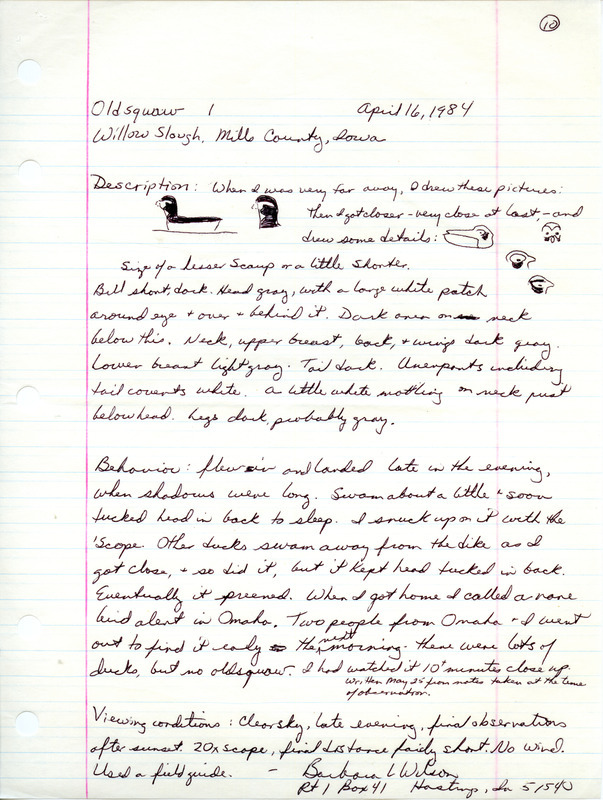 10
Oldsquaw 1 April 16, 1984
Willow Slough, Mills County, Iowa
Description: When I was very far away, I drew these pictures:
Then I got closer - very close at last, - and
drew some details:
Size of a lesser Scaup or a little shorter.
Bill short, dark. Head gray, with a large white patch
around eye + over + behind it. Dark area on neck
below this. Neck, upper breast, back, + wings dark gray.
Lower breast light gray. Tail dark. Underparts including
tail coverts white. A little white mottling on neck just
below head. Legs dark, probably gray.
Behavior: flew in and landed late in the evening,
when shadows were long. Swam about a little + soon
tucked head in back to sleep. I snuck up on it with the
'scope. Other ducks swam away from the dike as I
got close, + so did it, but it kept head tucked in back.
Eventually it preened. When I got home I called a rare
bird alert in Omaha. Two people from Omaha + I went
out to find it early the next morning. there were lots of
ducks, but no oldsquaw. I had watched it 10+ minutes close up.
Written May 25 from notes taken at the time
of observation.
Viewing conditions: Clear sky, late evening, final observations
after sunset. 20x scope, final distance fairly short. No wind.
Used a field guide. - Barbara L Wilson
Rt 1 Box 41 Hastings, Ia 51540